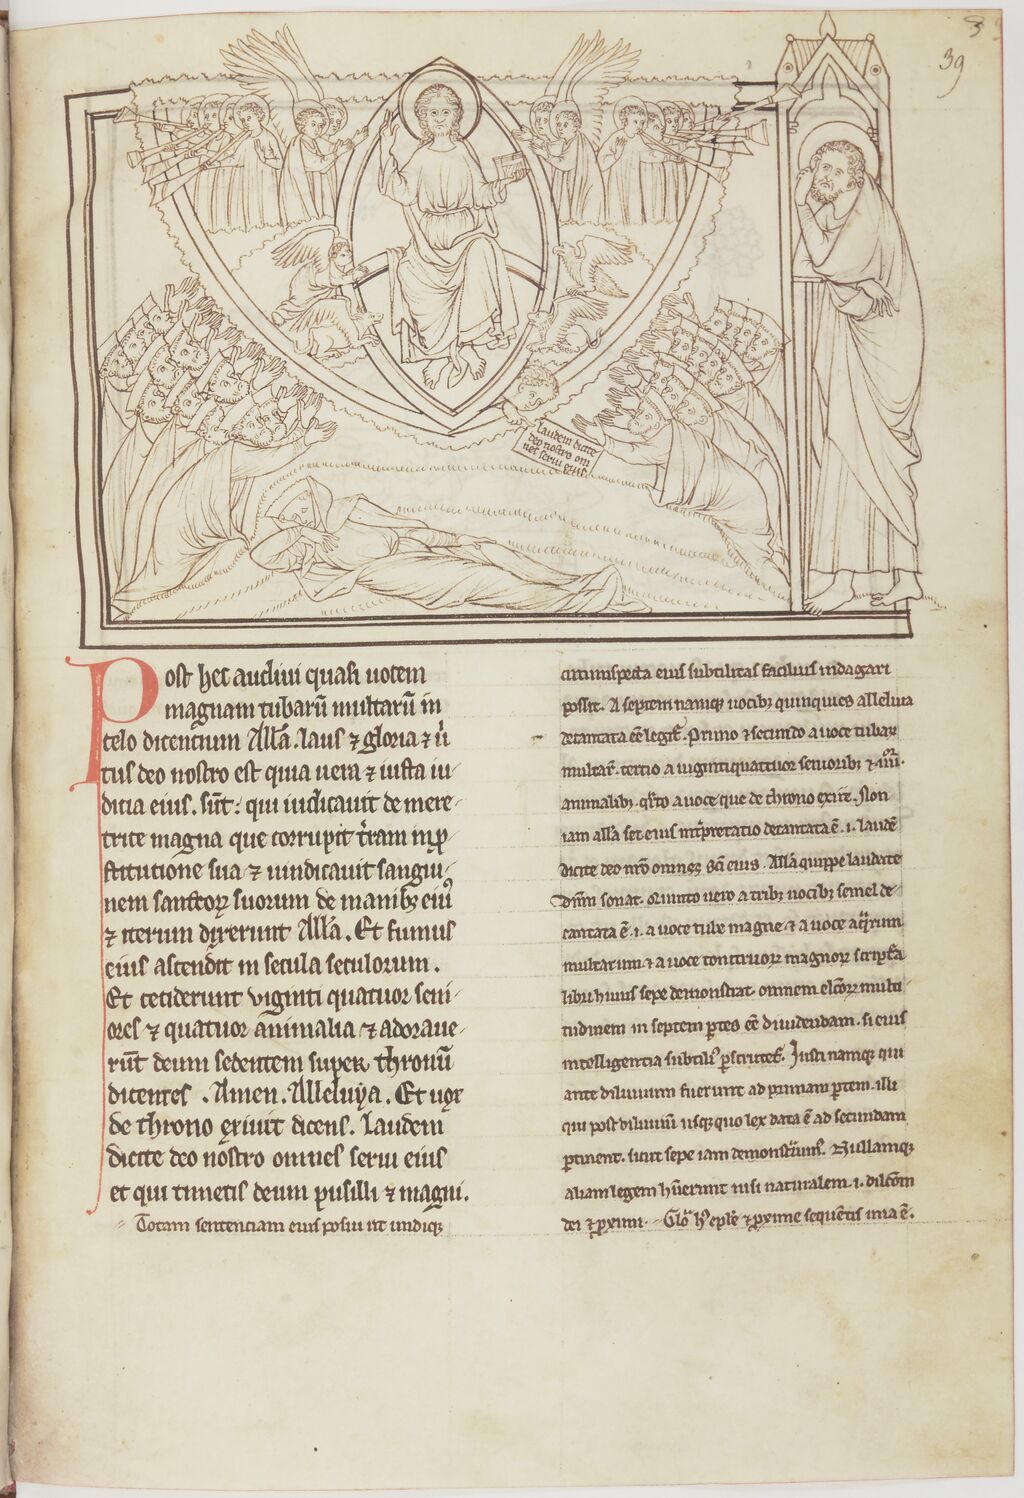 39
laudem dicite
deo nostro om
nes serui eius
Post hec audiui quasi uocem
magnam tubarū multarū in
celo dicencium Allā. laus ⁊ gloria ⁊ ũ
tus deo nostro est quia uera ⁊ iusta iu
dicia eius. sūt: qui iudicauit de mere
trite magna que corrupit t̄ram in ꝓ
stitutione sua ⁊ uindicauit sangui
nem sanctoꝝ suorum de manibꝫ eiꝰ
⁊ iterum dixerunt Allā. Et fumus
eius ascendit in secula seculorum.
Et ceciderunt viginti quatuor seni
ores ⁊ quatuor animalia ⁊ adoraue
rūt deum sedentem super thronū
dicentes. Amen. Alleluya. Et uox
de throno exiuit dicens. Laudem
dicite deo nostro omnes serui eius
et qui timetis deum pusilli ⁊ magni.
Totam sentenciam eius posui ut undiqꝫ
circumspecta eius subtilitas facilius indagari
possit. A septem namqꝫ uocibꝫ quinquies alleluia
decantata eē legit̄. Primo ⁊ secundo a uoce tubaꝝ
multaꝝ. tercio a uigintiquattuor senioribꝫ ⁊ iiiioꝝ.
animalibꝫ. q̄rto a uoce que de throno exiit. Non
iam allā set eius int̄pretatio decantata ē. i. laudē
dicite deo nr̄o omnes sc̄i eius. Allā quippe laudate
dn̄m sonat. Quinto uero a tribꝫ uocibꝫ semel de
cantata ē. i. a uoce tube magne ⁊ a uoce aq̄rum
multarum ⁊ a uoce tonitruoꝝ magnoꝝ scriptā
libri huius sepe demonstrat. omnem elc̄oꝝ multi
tudinem in septem ꝑtes eē diuidendam. si eius
intelligencia subtiliꝰ ꝑscrutet̄. Iusti namqꝫ qui
ante diluuium fuerunt ad primam ꝑtem. illi
qui post diluuiū usqꝫ quo lex data ē ad secundam
ꝑtinent. sicut sepe iam demonstrauimꝰ. Nullamqꝫ
aliam legem hūerunt nisi naturalem. i. dilc̄om
dei ⁊ ꝓximi. Glo hꝰ eple ⁊ ꝓxime sequentis una ē.